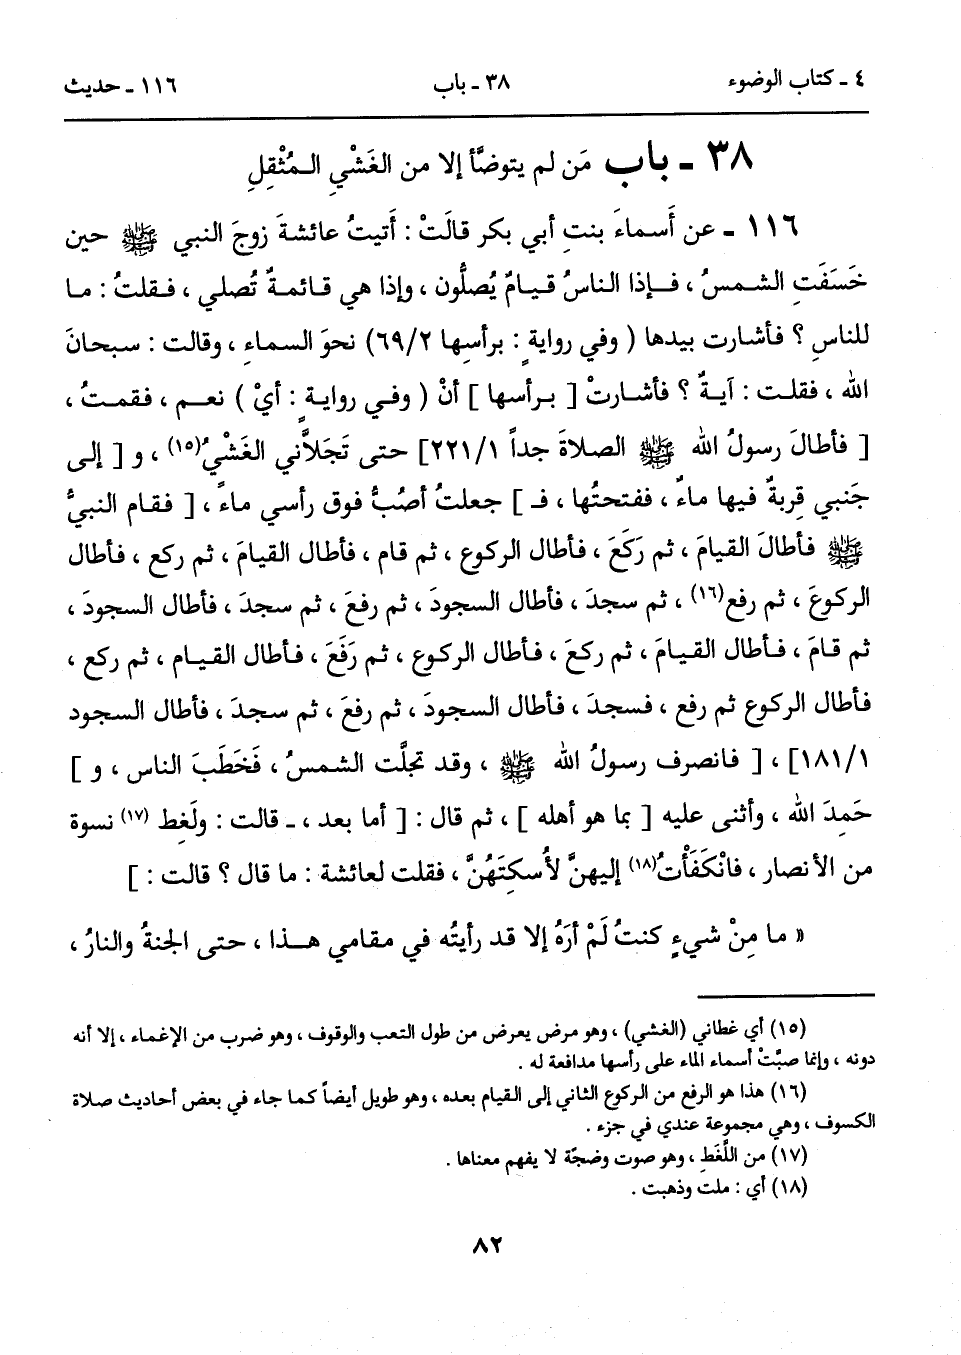 ٤ ـ كتاب الوضوء ٣٨ ـ باب ١١٦ ـ حديث
٣٨ ـ باب مَن لم يتوضَّأ إلا من الغَشْيِ الـمُثْقِلِ
١١٦ ـ عن أَسماءَ بنتِ أبي بكر قالَتْ : أَتيتُ عائشةَ زوجَ النبي ﷺ حين
خَسَفَتِ الشـمسُ ، فـإذا الناسُ قيـامٌ يُصلُّون ، وإذا هي قائمـةٌ تُصلي ، فـقلتُ : ما
للناسِ ؟ فأشارت بيدها ( وفي روايةٍ : برأسِها ٦٩/٢) نحوَ السماءِ ، وقالت : سبحانَ
الله ، فقلـت : آيـةٌ ؟ فأشـارتْ [ بـرأسهـا ] أنْ ( وفـي روايـةٍ : أيْ ) نعـم ، فقمـتُ ،
[ فأطالَ رسولُ الله ﷺ الصلاةَ جداً ٢٢١/١] حتى تَجَلاَّني الغَشْيُ(١٥) ، و [ إلى
جَنبي قِربةٌ فيها ماءٌ ، ففتحتُها ، فـ ] جعلتُ أصُبُّ فوق رأسي ماءً ، [ فقام النبيُّ
ﷺ فأطالَ القيامَ ، ثم رَكَعَ ، فأطال الركوع ، ثم قام ، فأطال القيامَ ، ثم ركع ، فأطال
الركوعَ ، ثم رفع(١٦) ، ثم سجدَ ، فأطال السجودَ ، ثم رفعَ ، ثم سجدَ ، فأطال السجودَ ،
ثم قامَ ، فـأطال القيـامَ ، ثم ركعَ ، فأطال الركوع ، ثم رَفَعَ ، فـأطال القيـام ، ثم ركع ،
فأطال الركوع ثم رفع ، فسجدَ ، فأطال السجودَ ، ثم رفعَ ، ثم سجدَ ، فأطال السجود
١٨١/١] ، [ فانصرف رسولُ الله ﷺ ، وقد تجلَّت الشمسُ ، فَخَطَبَ الناس ، و ]
حَمِدَ الله ، وأثنى عليه [ بما هو أهله ] ، ثم قال : [ أما بعد ، ـ قالت : ولَغِط (١٧) نسوة
من الأنصار ، فانْكَفَأْتُ(١٨) إليهنَّ لأُسكِتَهُنَّ ، فقلت لعائشة : ما قال ؟ قالت : ]
« ما مِنْ شيءٍ كنتُ لَمْ أرَهُ إلا قد رأيتُه في مقامي هـذا ، حتى الجنةُ والنارُ ،
(١٥) أي غطاني (الغشي) ، وهو مرض يعرض من طول التعب والوقوف ، وهو ضرب من الإغماء ، إلا أنه
دونه ، وإنما صبَّتْ أسماء الماء على رأسها مدافعة له .
(١٦) هذا هو الرفع من الركوع الثاني إلى القيام بعده ، وهو طويل أيضاً كما جاء في بعض أحاديث صلاة
الكسوف ، وهي مجموعة عندي في جزء .
(١٧) من اللَّغَطِ ، وهو صوت وضجّة لا يفهم معناها .
(١٨) أي : ملت وذهبت .
٨٢